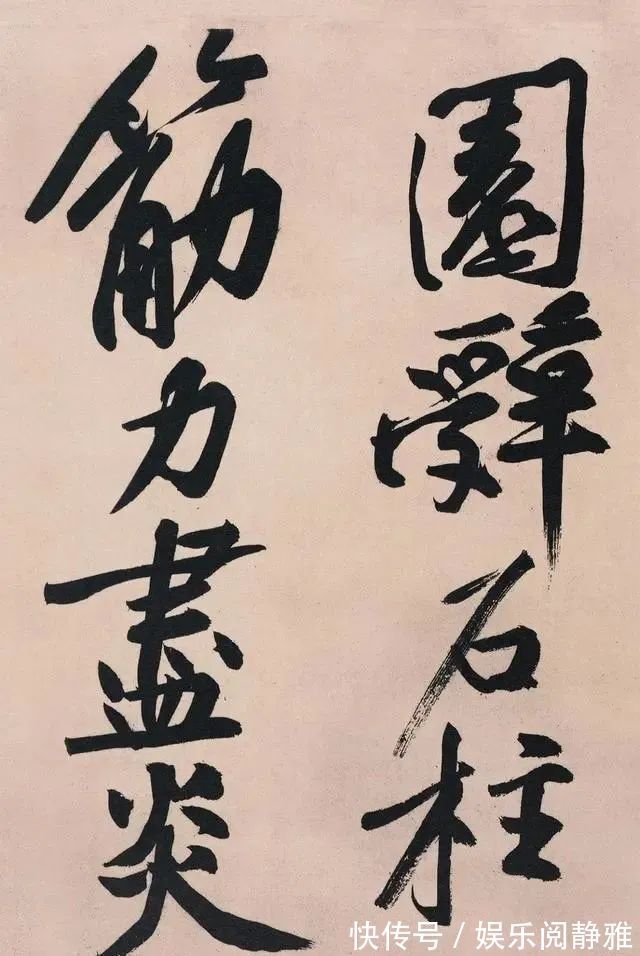 園辭石柱
筋力盡炎
快传号/娱乐阅静雅